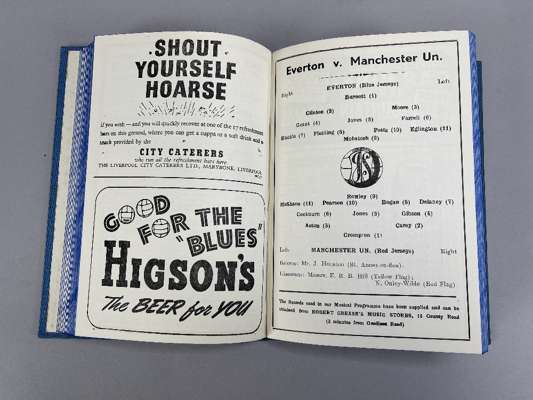 SHOUT
YOURSELF
HOARSE
if you wish—and you will quickly recover at one of the 17 refreshment
bars on this ground, where you can get a cuppa or a soft drink and a
snack provided by the
CITY CATERERS
who run all the refreshment bars here
THE LIVERPOOL CITY CATERERS LTD., MARYBONE, LIVERPOOL
GOOD
FOR THE
"BLUES"
HIGSON'S
The BEER for YOU
Everton v. Manchester Un.
Right EVERTON (Blue Jerseys) Left
Burnett (1)
Clinton (2) Moore (3)
Grant (4) Jones (5) Farrell (6)
Fielding (8) Potts (10) Eglington (11)
McIntosh (9)
Rowley (9)
McShane (11) Pearson (10) Bogan (8) Delaney (7)
Cockburn (6) Jones (5) Gibson (4)
Aston (3) Carey (2)
Crompton (1)
Left MANCHESTER UN. (Red Jerseys) Right
Referee: Mr. J.
Linesmen: Messrs. E. R. B. Hill (Yellow Flag);
N. Oxley-Wilde (Red Flag)
The Records used in our Musical Programme have been supplied and can be
obtained from ROBERT GREER'S MUSIC STORES, 15 County Road
(2 minutes from Goodison Road)